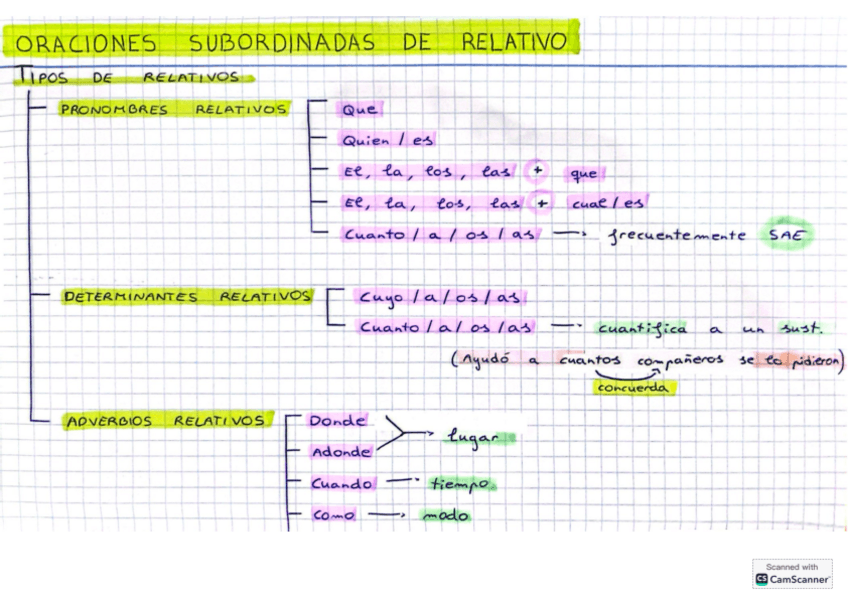 ORACIONES SUBORDINADAS DE RELATIVO
TIPOS DE RELATIVOS
PRONOMBRES RELATIVOS
Que
Quien / es
El, la, los, las + que
El, la, los, las + cual / es
Cuanto / a / os / as → frecuentemente SAE
DETERMINANTES RELATIVOS
Cuyo / a / os / as
Cuanto / a / os / as → cuantifica a un sust.
(Ayudó a cuantos compañeros se lo pidieron)
concuerda
ADVERBIOS RELATIVOS
Donde
Adonde
lugar
Cuando → tiempo
Como → modo
Scanned with
CS CamScanner